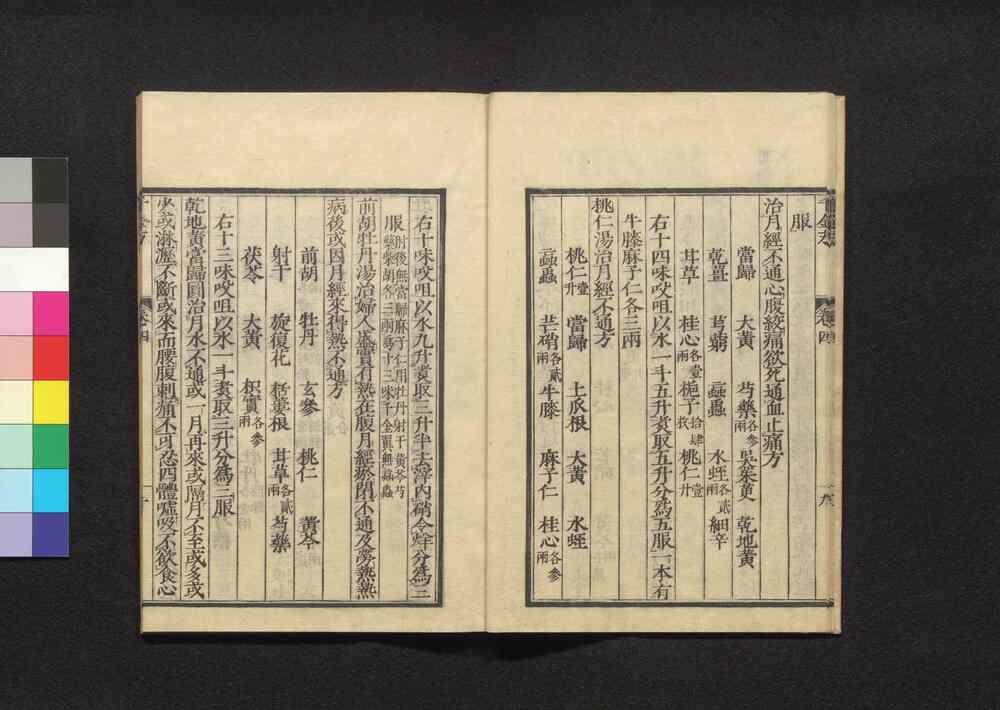 服
治月經不通心腹絞痛欲死通血止痛方
當歸 大黃 芍藥各參兩 吳茱萸 乾地黃
乾薑 芎藭 䗪蟲 水蛭各貳兩 細辛
甘草 桂心各壹兩 梔子拾肆枚 桃仁壹升
右十四味㕮咀以水一斗五升煮取五升分爲五服一本有
牛膝麻子仁各三兩
桃仁湯治月經不通方
桃仁壹升 當歸 土瓜根 大黃 水蛭
䗪蟲 芒硝各貳兩 牛膝 麻子仁 桂心各參兩
千金方
卷四
九
右十味㕮咀以水九升煮取三升半去滓內硝令烊分爲三
服肘後無當歸麻子仁用牡丹射干黃芩芍藥柴胡各三兩爲十三味千金翼無䗪蟲
前胡牡丹湯治婦人盛實有熱在腹月經瘀閉不通及勞熱熱
病後或因月經來得熱不通方
前胡 牡丹 玄參 桃仁 黃芩
射干 旋復花 栝蔞根 甘草各貳兩 芍藥
茯苓 大黃 枳實各參兩
右十三味㕮咀以水一斗煮取三升分爲三服
乾地黃當歸圓治月水不通或一月再來或隔月不至或多或
少或淋瀝不斷或來而腰腹刺痛不可忍四體噓吸不欲飲食心
千金方
卷四
十